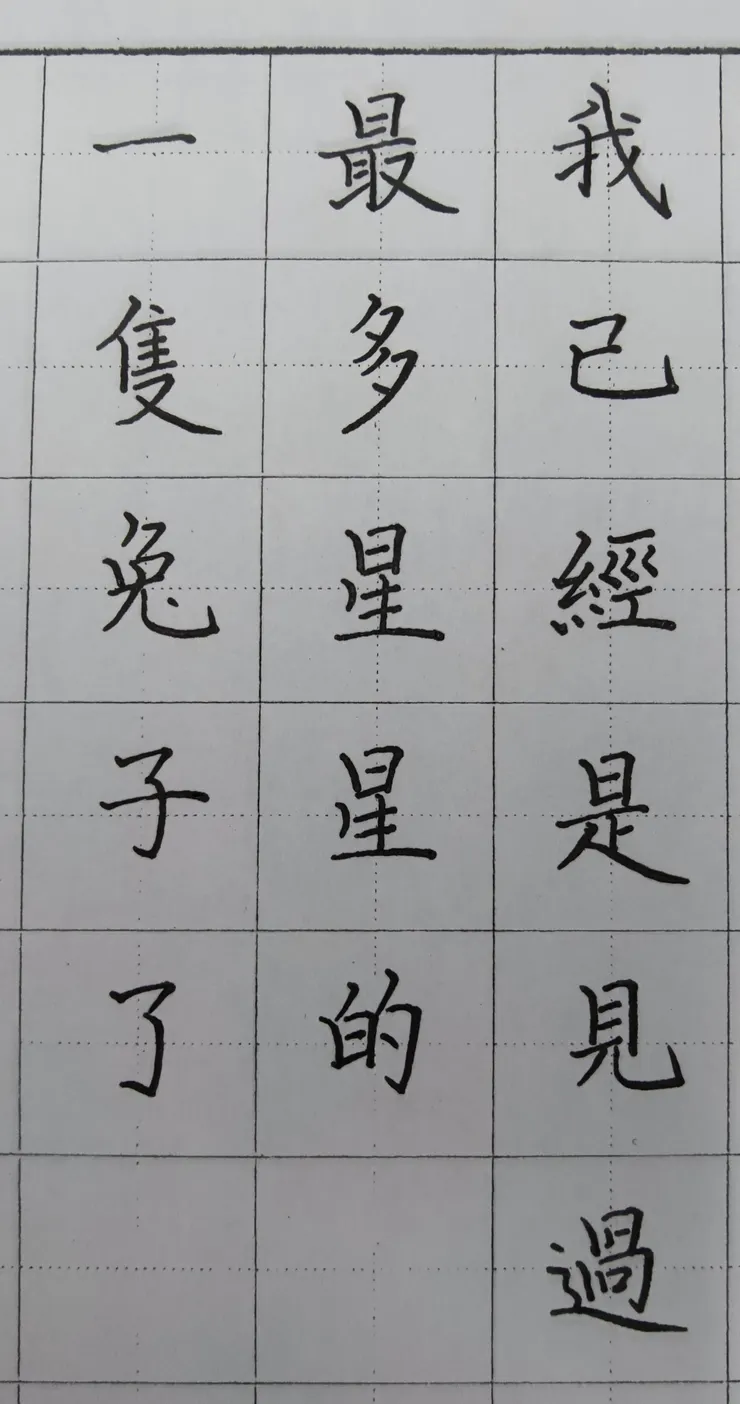 我已經是見過
最多星星的
一隻兔子了